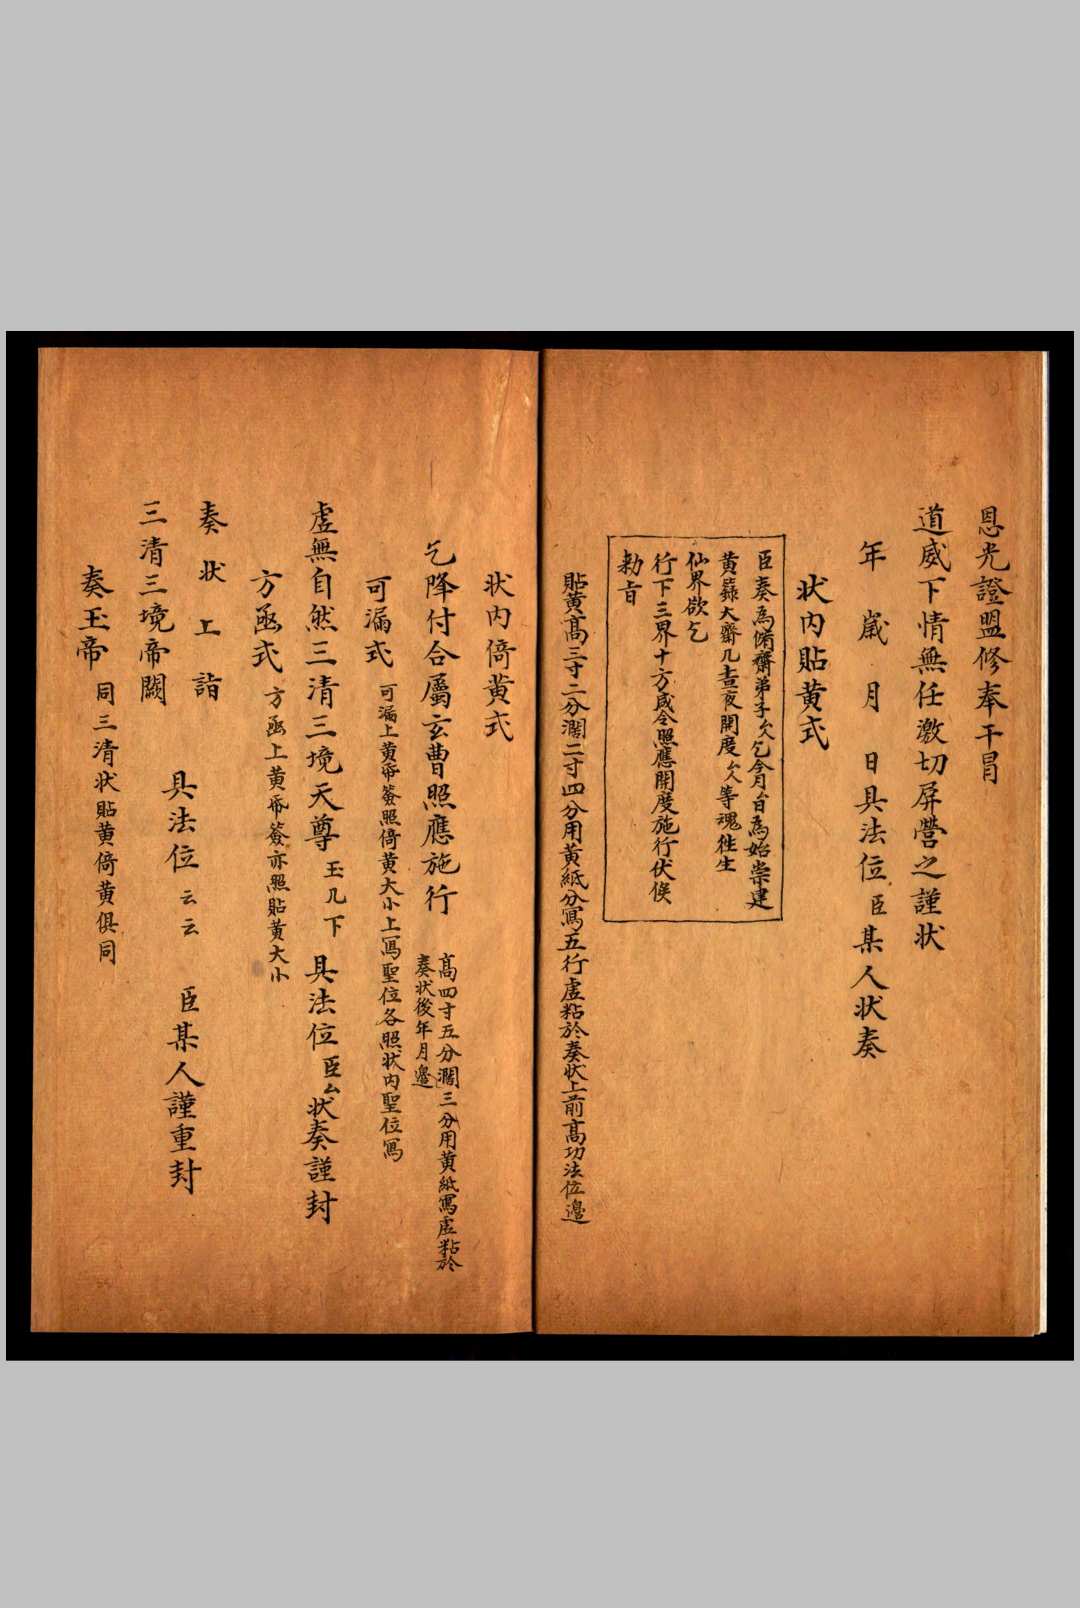 恩光證盟修奉干冒
道威下情無任激切屏營之謹狀
年 歲 月 日具法位臣某人狀奏
狀内貼黄式
臣奏爲修齋弟子厶乞今月厶日爲始崇建
黄籙大齋几晝夜開度厶人等魂徃生
仙界欲乞
行下三界十方咸令照應開度施行伏候
勑旨
貼黄高三寸二分濶二寸四分用黄紙分寫五行虚粘於奏狀上前高功法位邉
狀内倚黄式
乞降付合屬玄曹照應施行 高四寸五分濶三分用黄紙寫虚粘於
奏狀後年月邉
可漏式 可漏上黄帋簽照倚黄大小上寫聖位各照狀内聖位寫
虚無自然三清三境天尊 玉几下 具法位臣厶狀奏謹封
方函式 方函上黄帋簽亦照貼黄大小
奏狀上詣
三清三境帝闕
具法位云云 臣某人謹重封
奏玉帝 同三清狀貼黄倚黄俱同